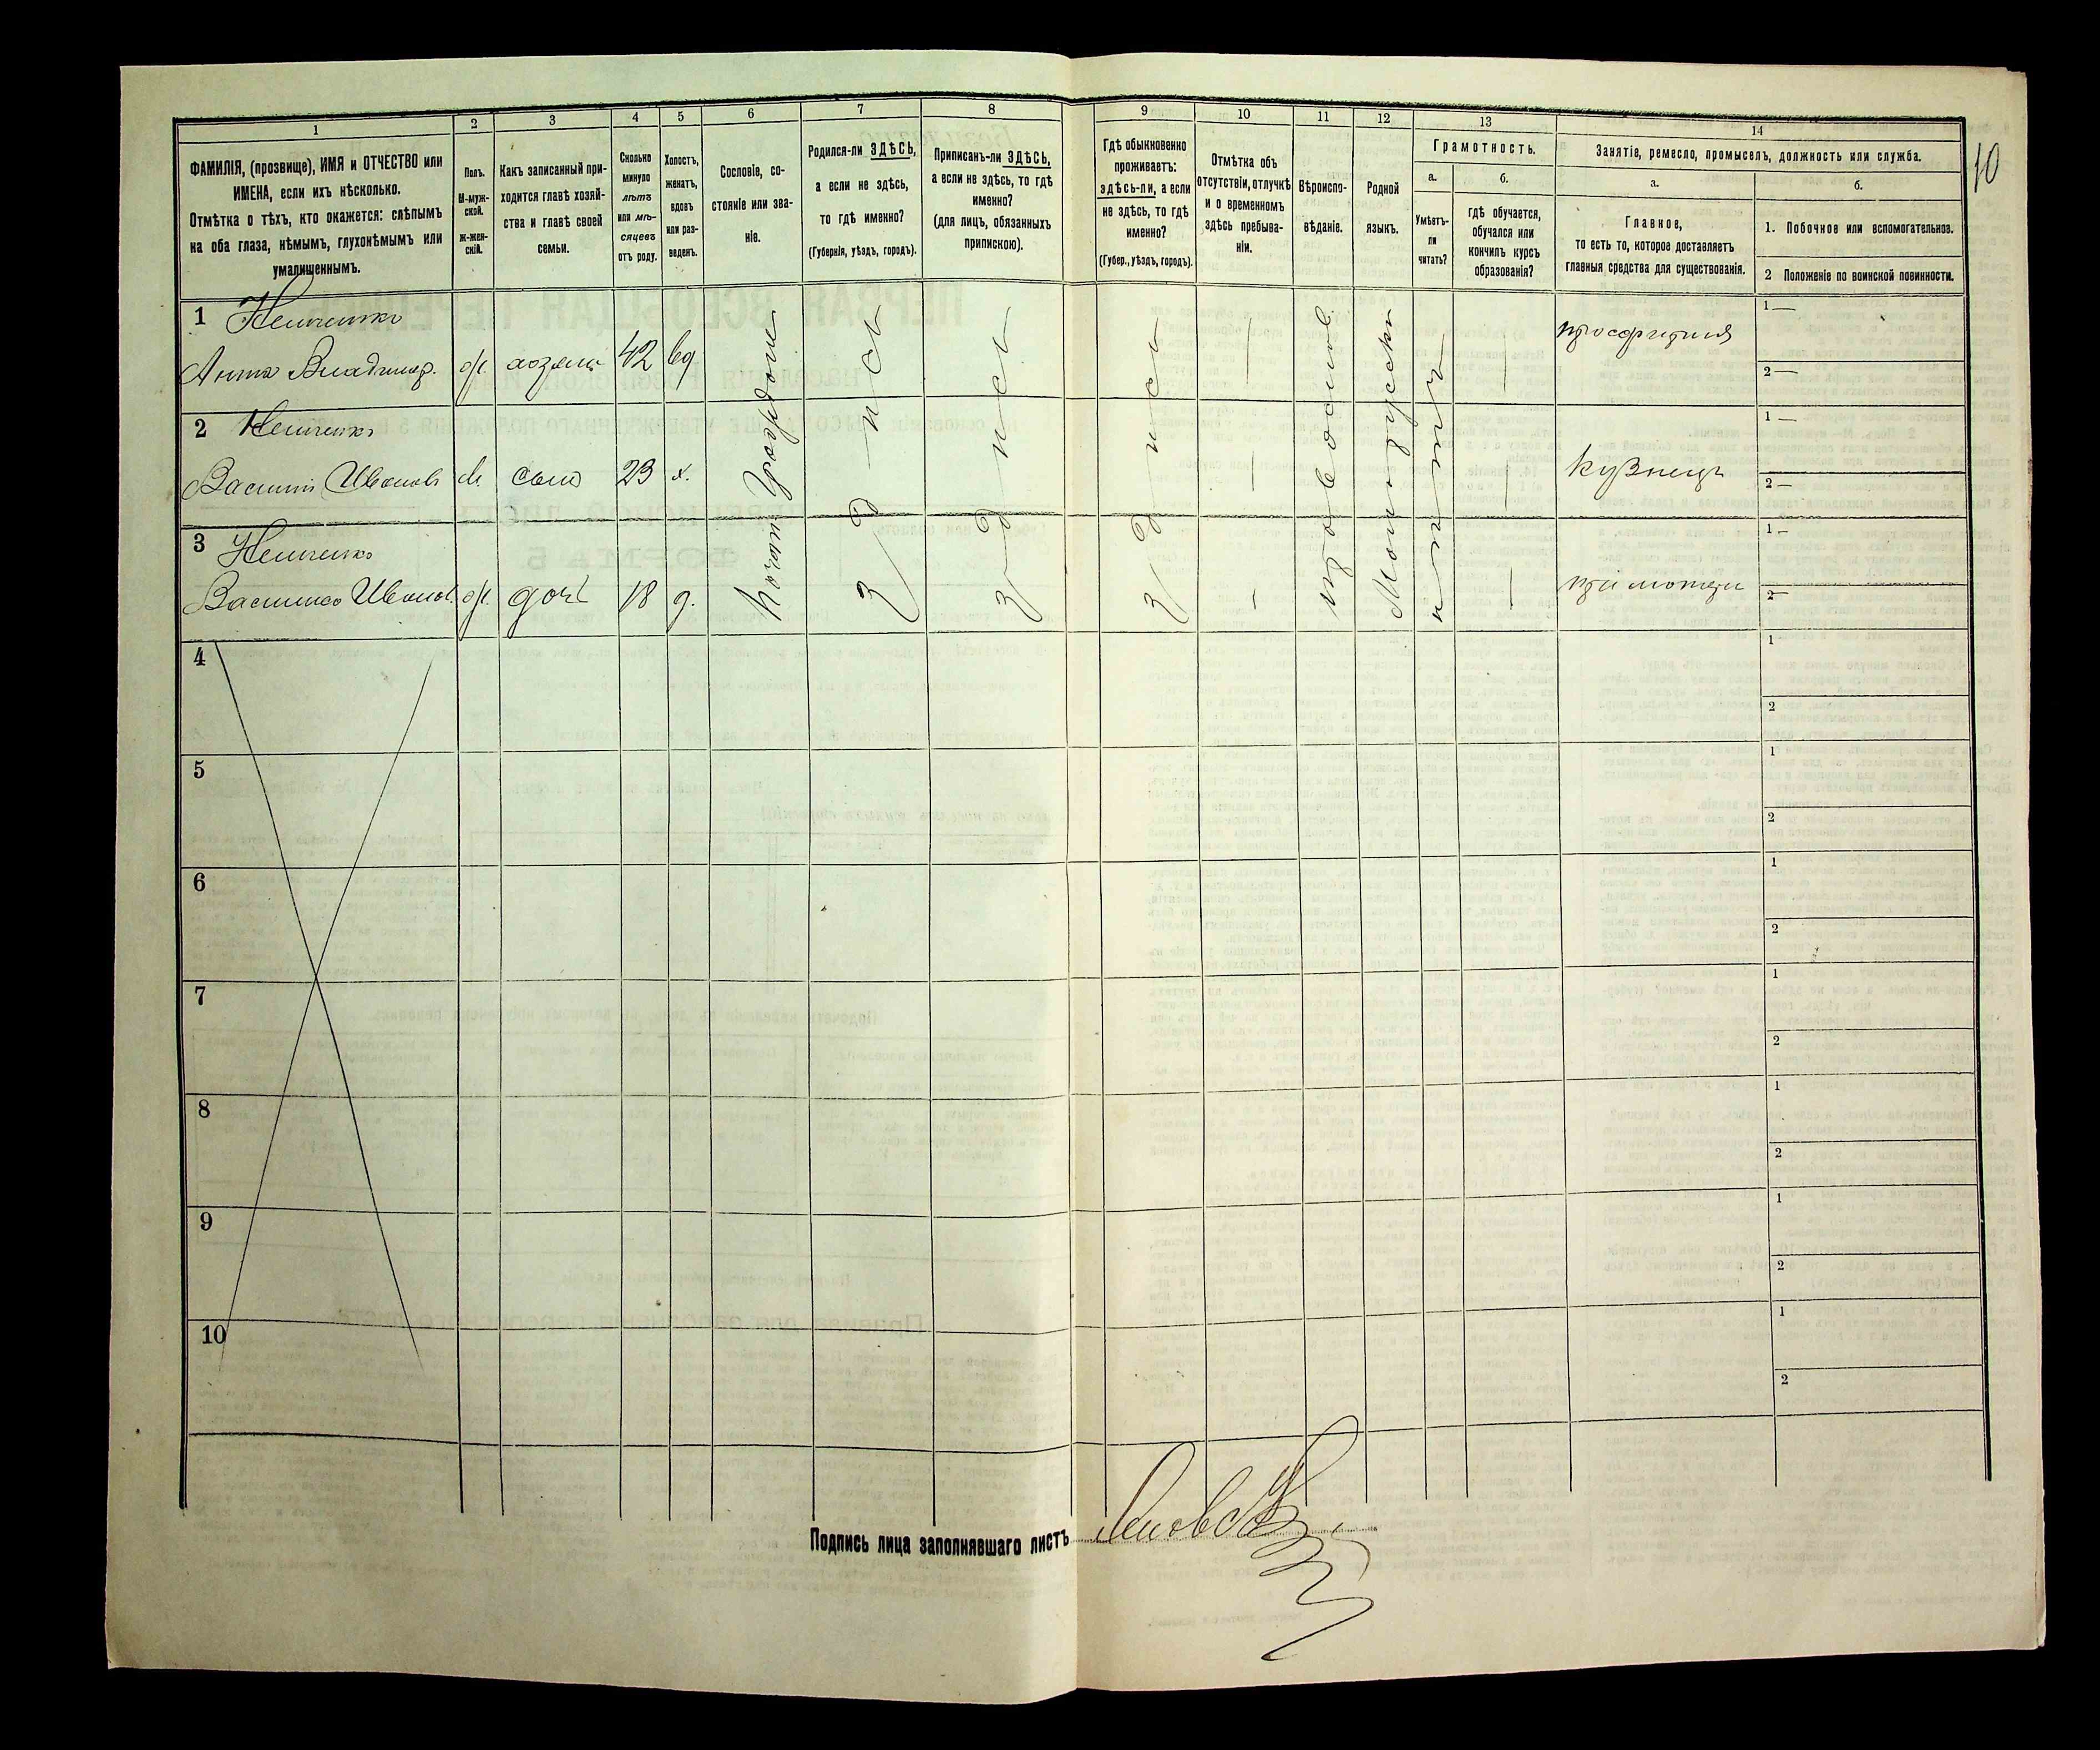 10
1
2
3
4
5
6
7
8
9
10
11
12
13
14
ФАМИЛІЯ, (прозвище), ИМЯ и ОТЧЕСТВО или
ИМЕНА, если ихъ нѣсколько.
Отмѣтка о тѣхъ, кто окажется: слѣпымъ
на оба глаза, нѣмымъ, глухонѣмымъ или
умалишеннымъ.
Полъ.
М-муж-
ской.
ж-жен-
скій.
Какъ записанный при-
ходится главѣ хозяй-
ства и главѣ своей
семьи.
Сколько
минуло
лѣтъ
или мѣ-
сяцевъ
отъ роду.
Холостъ,
женатъ,
вдовъ
или раз-
веденъ.
Сословіе, со-
стояніе или зва-
ніе.
Родился-ли ЗДѢСЬ,
а если не здѣсь,
то гдѣ именно?
(Губернія, уѣздъ, городъ).
Приписанъ-ли ЗДѢСЬ,
а если не здѣсь, то гдѣ
именно?
(для лицъ, обязанныхъ
припискою).
Гдѣ обыкновенно
проживаетъ:
здѣсь-ли, а если
не здѣсь, то гдѣ
именно?
(Губер., уѣздъ, городъ).
Отмѣтка объ
отсутствіи, отлучкѣ
и о временномъ
здѣсь пребыва-
ніи.
Вѣроиспо-
вѣданіе.
Родной
языкъ.
Грамотность.
а.
Умѣетъ-
ли
читать?
б.
гдѣ обучается,
обучался или
кончилъ курсъ
образованія?
Занятіе, ремесло, промыселъ, должность или служба.
а.
Главное,
то есть то, которое доставляетъ
главныя средства для существованія.
б.
1. Побочное или вспомогательное.
2 Положеніе по воинской повинности.
1
Анна Владимір. ж. хозяйка 42 вд
просфирня
1 —
2 —
2
Василій Ивановъ м. сынъ 23 х.
кузнецъ
1 —
2 —
3
Василиса Иванов. ж. дочь 18 д.
при матери
1 —
2 —
4
1
2
5
1
2
6
1
2
7
1
2
8
1
2
9
1
2
10
1
2
Подпись лица заполнявшаго листъ